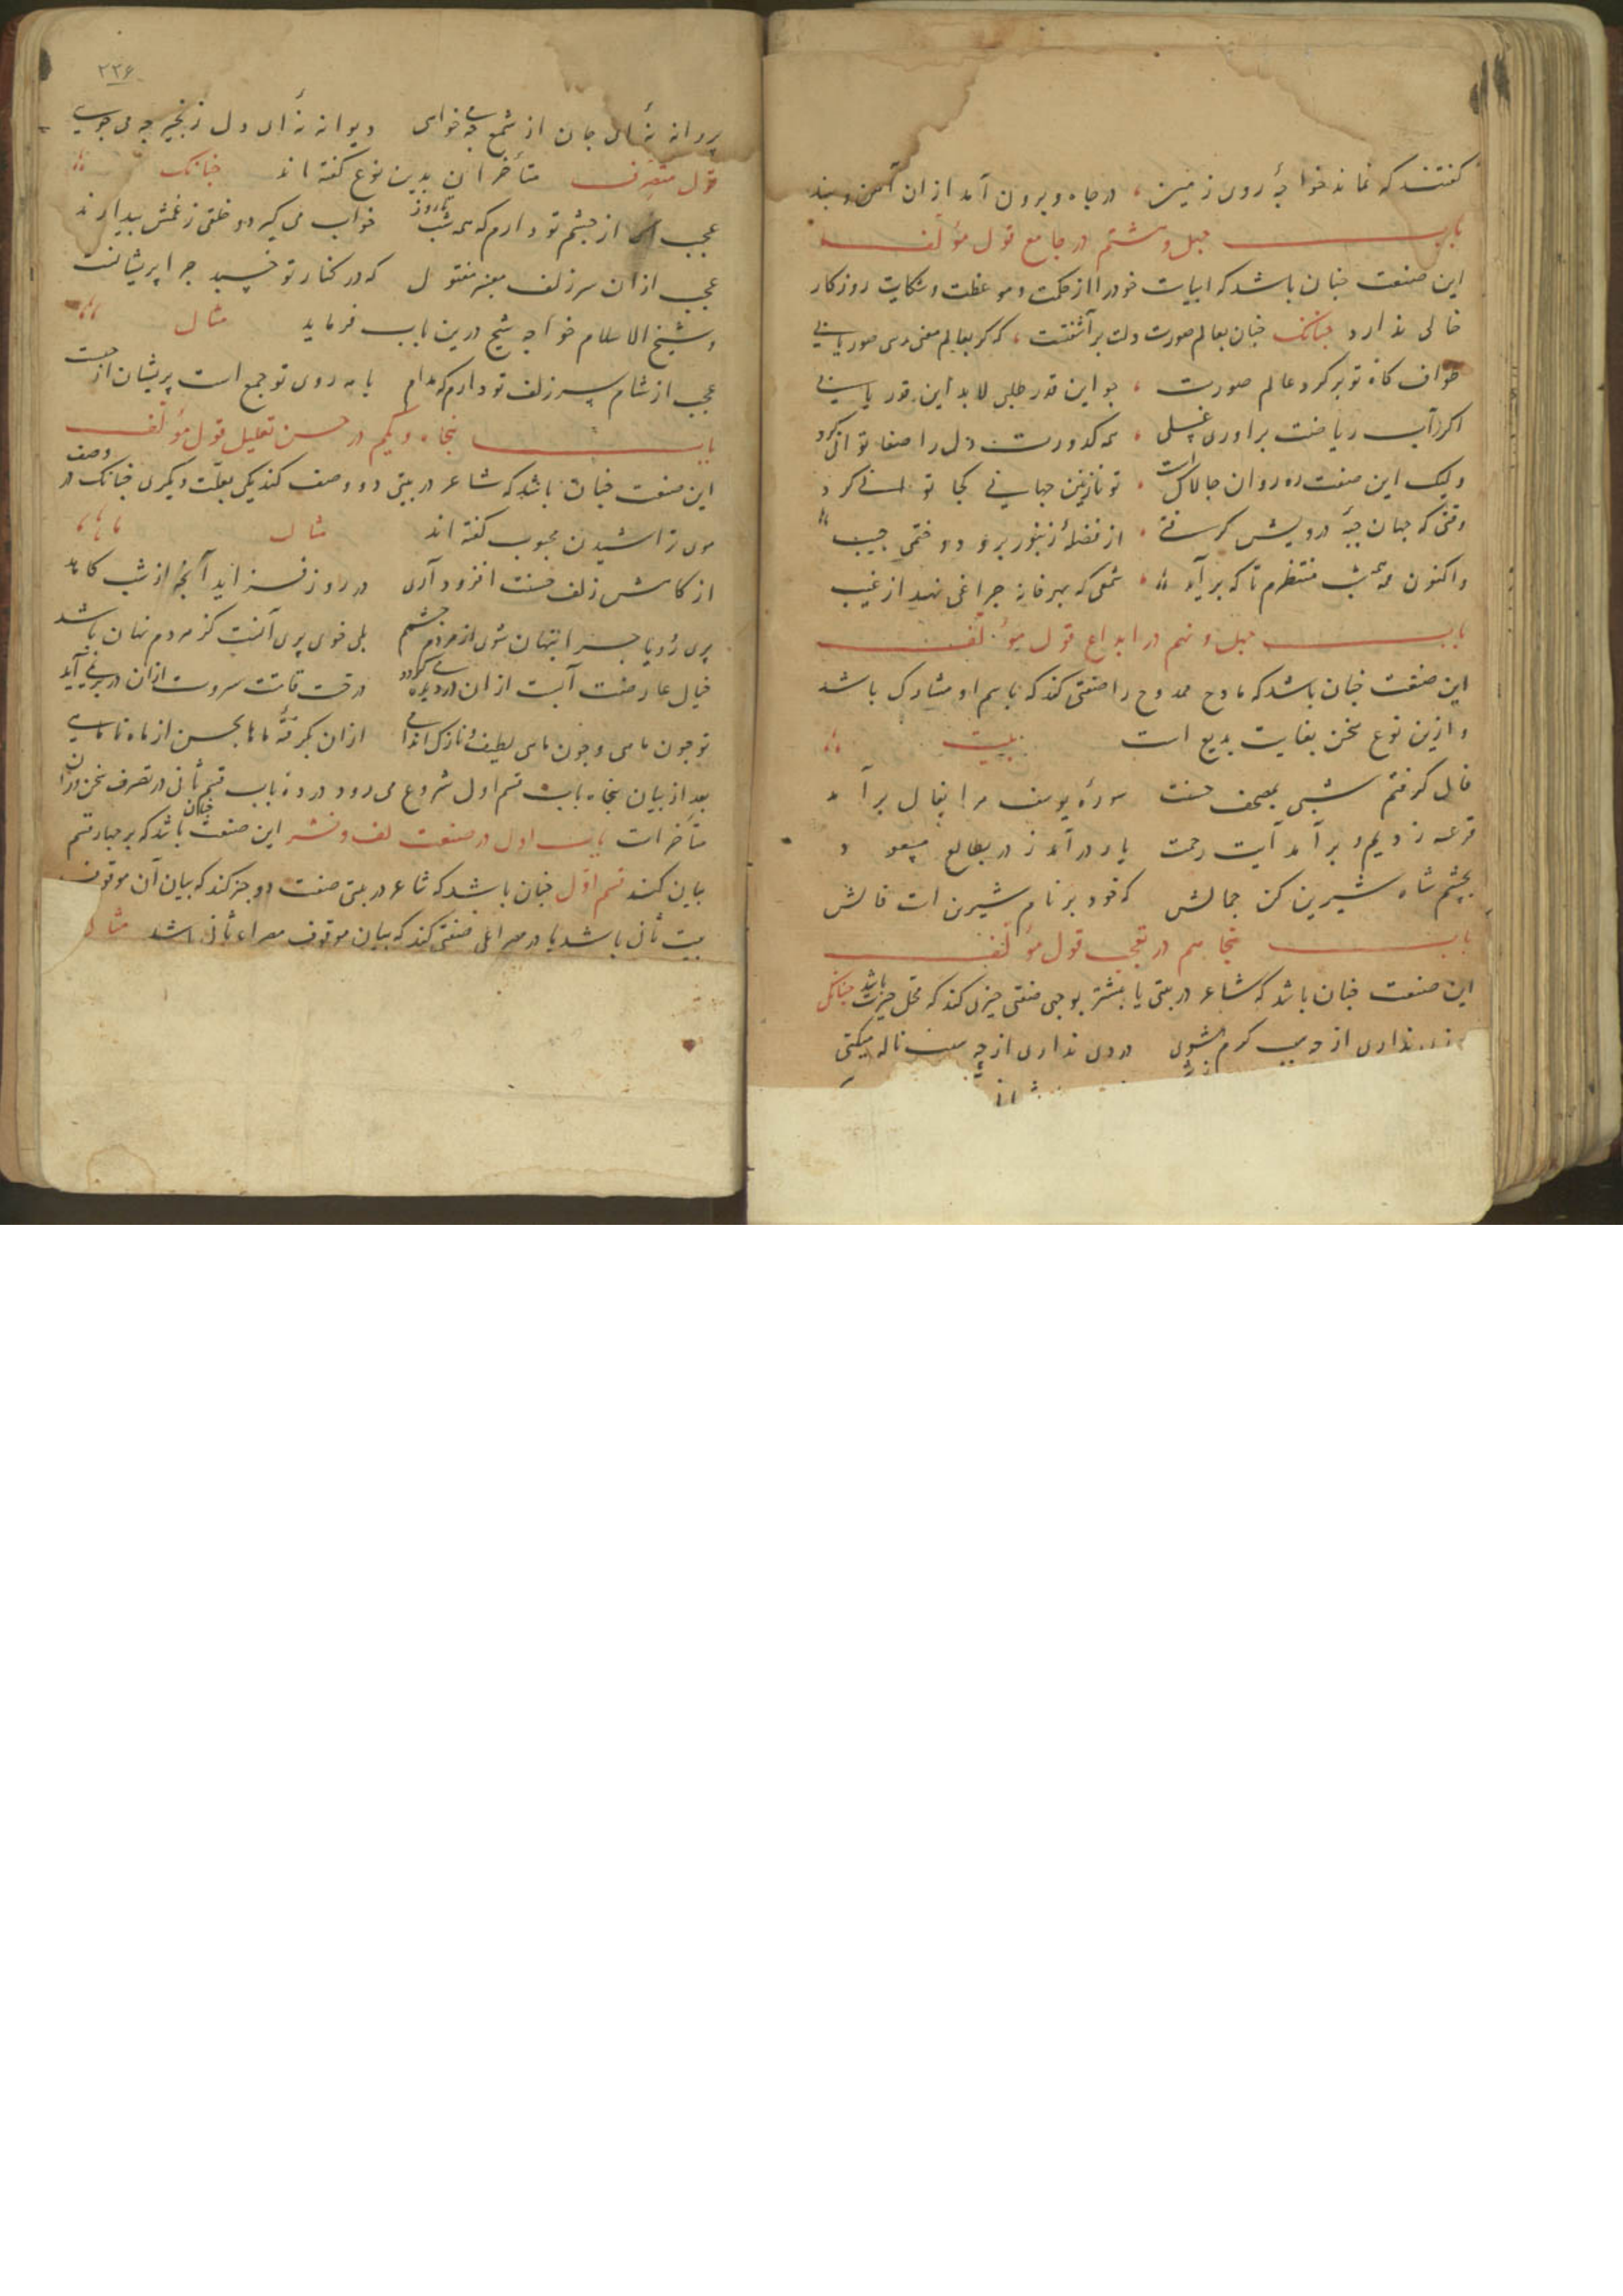 گفتند که نماند خواجهٔ روی زمین در چاه و برون آمد ازان آهن و بند
باب چهل و هشتم در جامع قول مؤلف
این صنعت چنان باشد که ابیات خود را از حکمت و موعظت و شکایت روزکار
خالی ندارد چنانک چنان بعالم صورت دلت برآشفتست که کر بعالم معنی رسی صور یابی
طواف کاه تو بر کرد عالم صورت چو این قدر طلبی لابد این قدر یابی
اکر آب ریاضت براوری غسلی همه کدورت دل را صفا توانی کرد
ولیک این صفت ره روان چالاکست تو نازنین جهانی کجا توانی کرد
وقتی که جهان جبهٔ درویش کرفتی از فضلهٔ زنبور برو دوختمی جیب
واکنون همه شب منتظرم تا که برآید شمعی که بهر خانه چراغی نهد از غیب
باب چهل و نهم در ابداع قول مؤلف
این صنعت چنان باشد که مادح ممدوح را صفتی کند که باسم او مشارک باشد
و ازین نوع سخن بغایت بدیع است بیت
فال کرفتم شبی بمصحف حسنت سورهٔ یوسف مرا بفال برآمد
قرعه زدیم و برآمد آیت رحمت یار درآمد ز در بطالع مسعود
بچشم شاه شیرین کن جمالش که خود بر نام شیرین است فالش
باب پنجاهم در تعجب قول مؤلف
این صنعت چنان باشد که شاعر در بیتی یا بیشتر بوجهی صفتی چیزی کند که محل حیرت باشد چنانکه
نداری از چه سبب کرم می‌شوی دردی نداری از چه سبب ناله میکنی
۲۲۶
پروانه نهٔ ای جان از شمع چه می‌خواهی دیوانه نهٔ ای دل زنجیر چه می جویی
قول متصرف متأخران بدین نوع کفته اند چنانک
عجب از چشم تو دارم که همه شب تا روز خواب می کیرد و خلقی ز غمش بیدارند
عجب ازان سر زلف معنبر مفتول که در کنار تو خسپد چرا پریشانست
و شیخ الاسلام خواجه شیخ درین باب فرماید مثال
عجب از شام سر زلف تو دارم که مدام با مه روی تو جمع است پریشان از چیست
باب پنجاه و یکم در حسن تعلیل قول مؤلف
این صنعت چنان باشد که شاعر در بیتی دو وصف کند یکی بعلت دیکری چنانک در وصف
موی تراشیدن محبوب کفته اند مثال
از کاهش زلف حسنت افزود آری در روز فزاید آنچه از شب کاهد
پری رویا چرا پنهان شوی از مردم چشمم بلی خوی پری آنست کز مردم نهان باشد
خیال عارضت آبست ازان در دیده می کردد درخت قامتت سروست ازان در بر نمی آید
تو چون ماهی و چون ماهی لطیف و نازک اندامی ازان بکرفتهٔ ماها بحسن از ماه تا ماهی
بعد از بیان پنجاه باب قسم اول شروع می رود در ده باب قسم ثانی در تصرف سخن وران
متأخرات باب اول در صنعت لف و نشر این صنعت چنان باشد که بر چهار قسم
بیان کنند قسم اول چنان باشد که شاعر در بیتی صفت دو چیز کند که بیان آن موقوف
بیت ثانی باشد یا در مصراعی صفتی کند که بیان موقوف مصراع ثانی باشد مثال